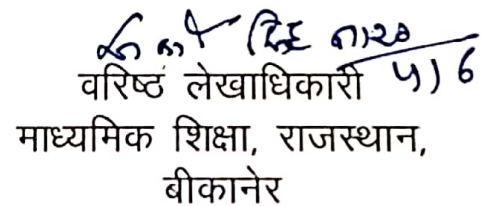 5/6
वरिष्ठं लेखाधिकारी
माध्यमिक शिक्षा, राजस्थान,
बीकानेर